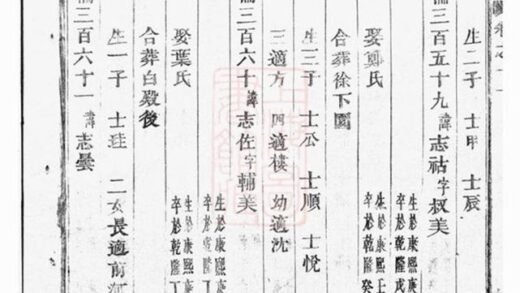 生二子 士甲 士辰
三百五十九 諱志祜字叔美
生於康熙
卒於乾隆
娶鄭氏
生於康熙
卒於乾隆
合葬徐下園
生三子 士公 士順 士悅
三適方 四適樓 幼適沈
三百六十 諱志佐字輔美
生於康熙
卒於
娶葉氏
生於康熙
卒於乾隆
合葬白殿後
生一子 士珪 二女長適南
三百六十一 諱志曇